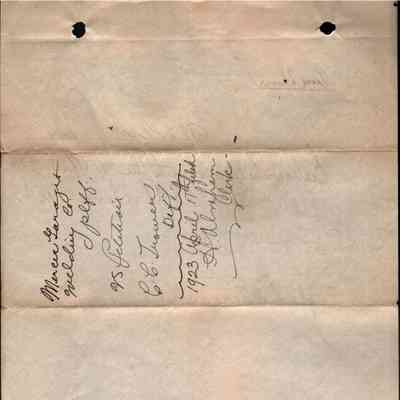 Mercer Garage &
Welding Co
Plff.
vs Petition
C C
Deft
1923 April 17th filed
Clerk-